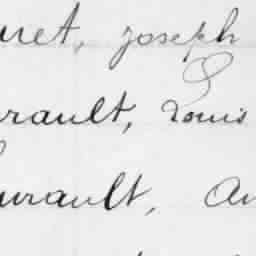 uret, Joseph
rault, Louis
urault, Au